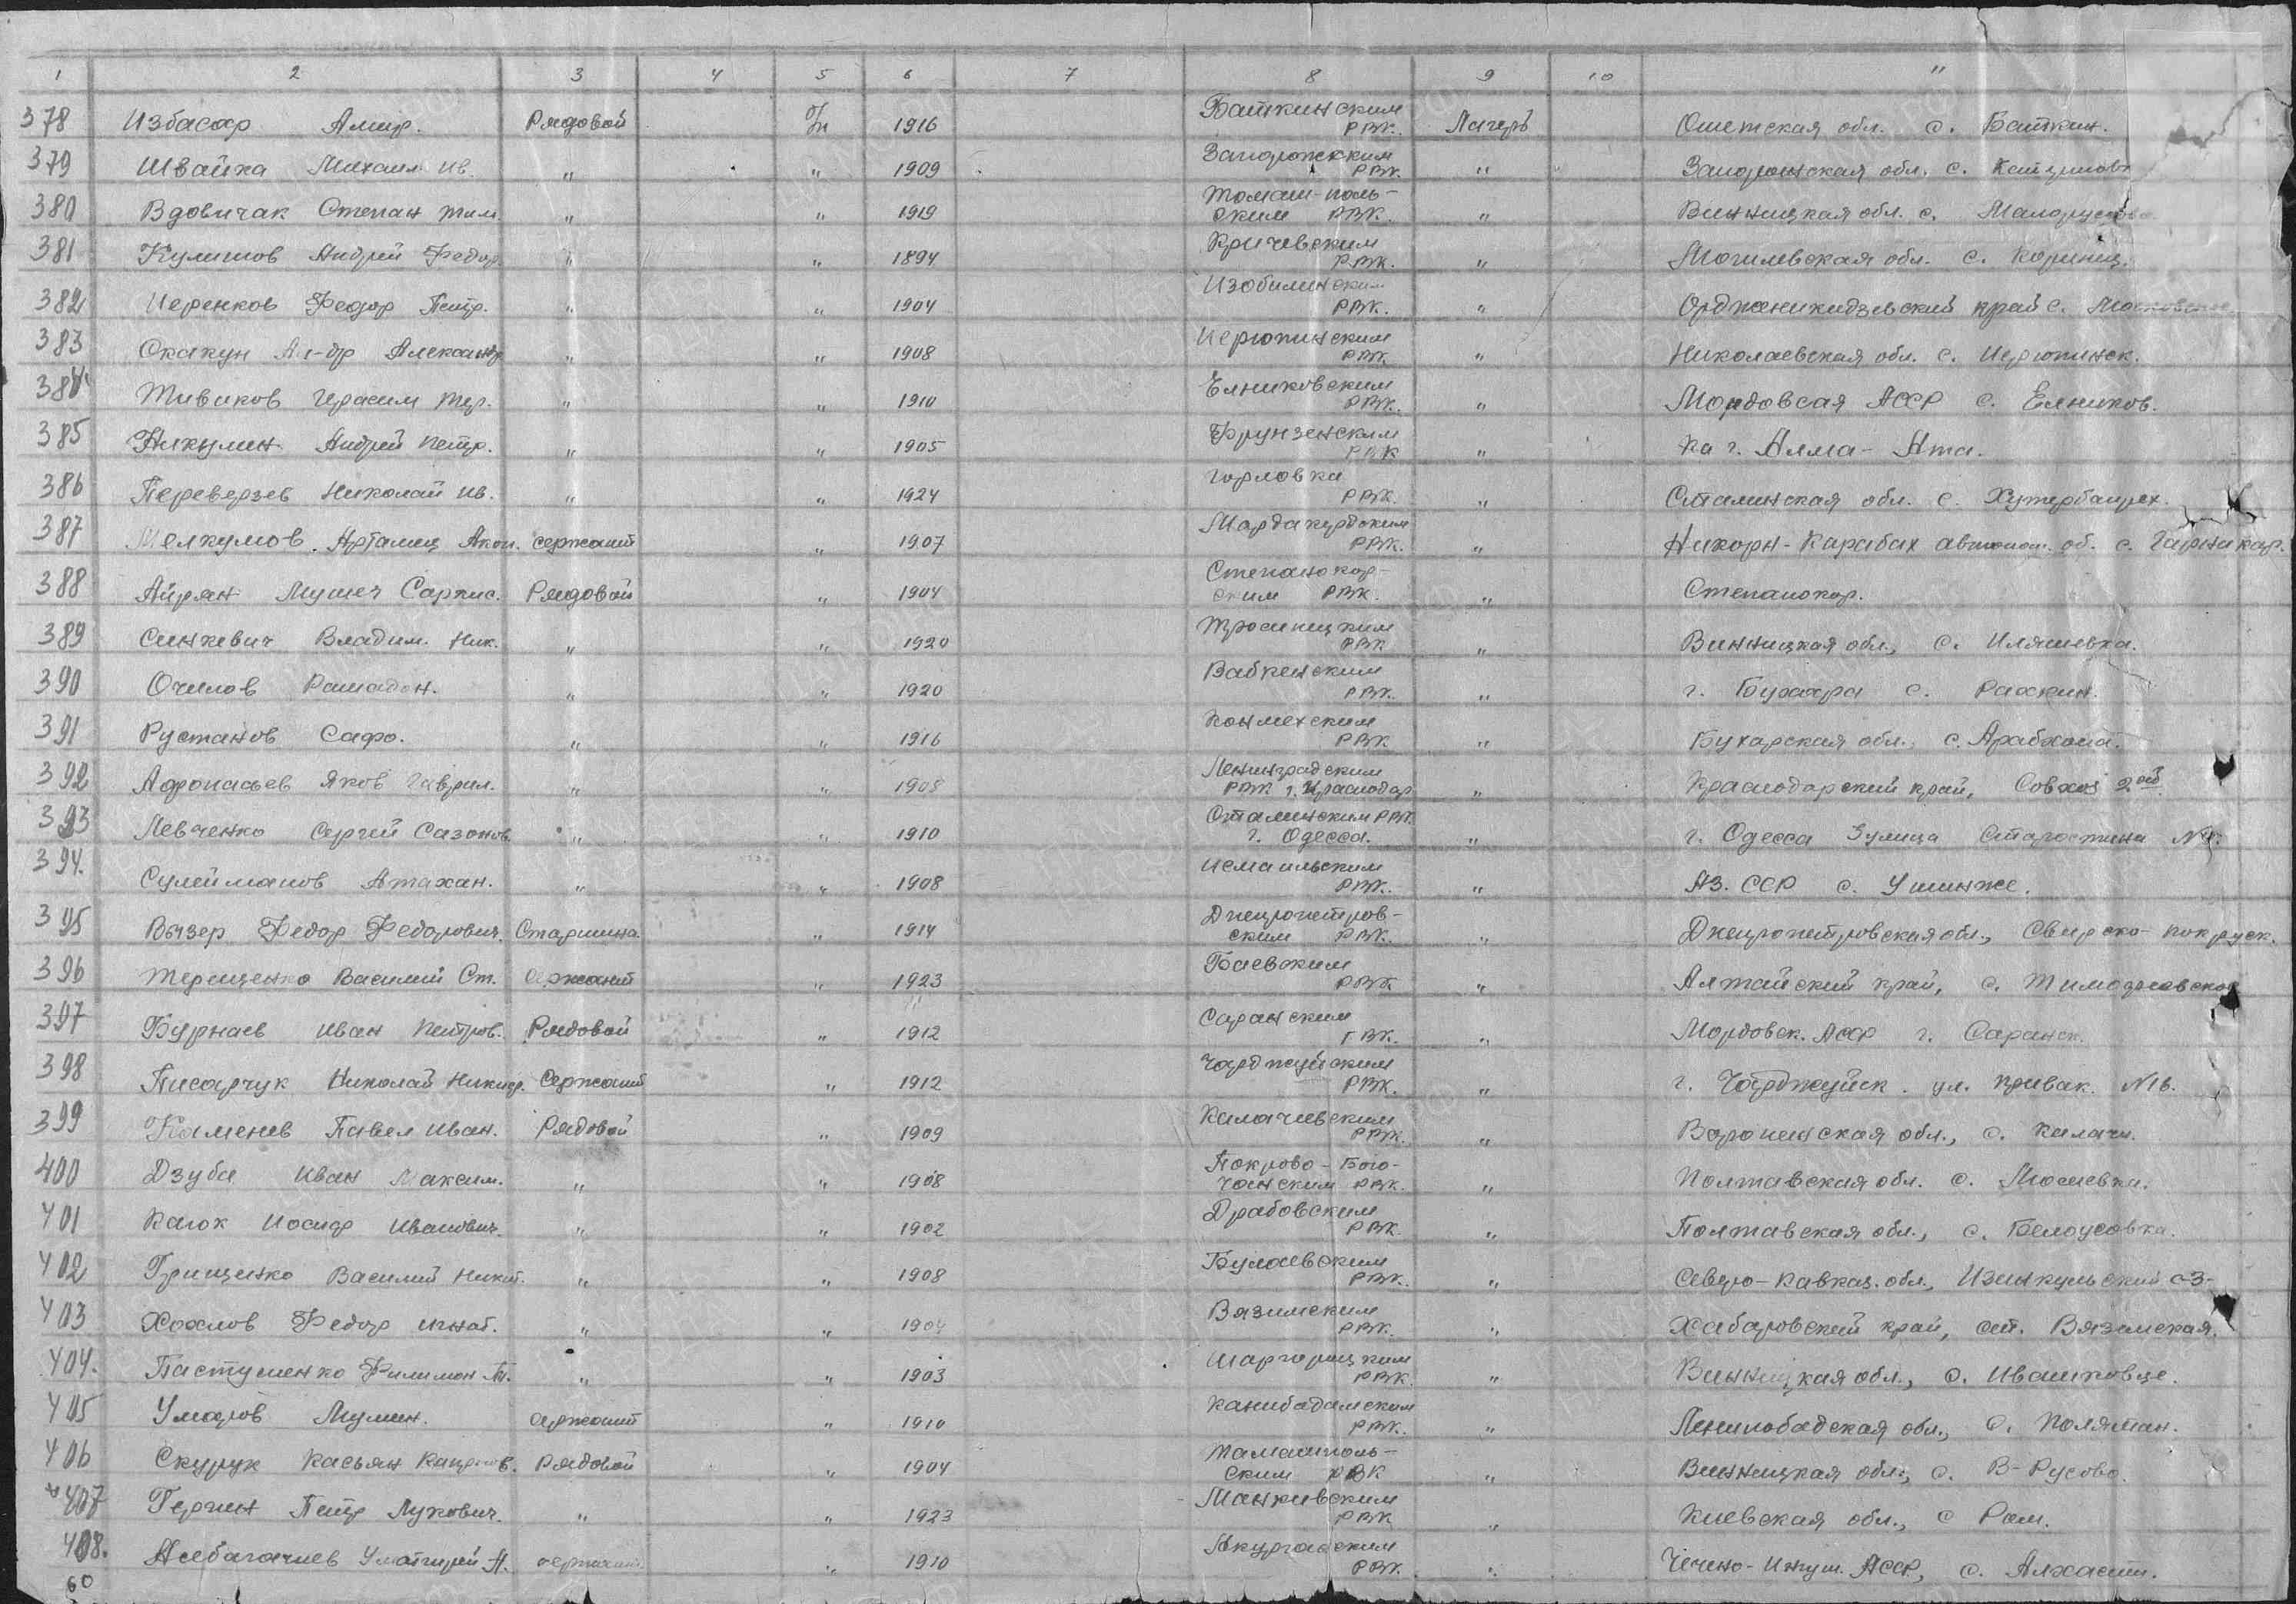 1 2 3 4 5 6 7 8 9 10 11
378 Избасар Амир. Рядовой б/п 1916 Баткинским РВК. Лагерь Ошетская обл. с. Баткин.
379 Швайка Михаил Ив. " " 1909 Запорожским РВК. " Запорожская обл. с.
380 Вдовичак Степан Тим. " " 1919 Томаш-поль-ским РВК. " Винницкая обл. с.
381 Кулишов Андрей Федор. " " 1894 Кричевским РВК. " Могилевская обл. с. Коринец.
382 Черенков Федор Петр. " " 1904 Изобилинским РВК. " Орджоникидзевский край с. Московское
383 Скакун Ал-др Александр. " " 1908 РВК. " Николаевская обл. с.
384 Тивиков Герасим Тер. " " 1910 Ельниковским РВК. " Мордовсая АССР с. Ельников.
385 Никулин Андрей Петр. " " 1905 Фрунзенским РВК " Ка г. Алма-Ата.
386 Переверзев Николай Ив. " " 1924 Горловка РВК. " Сталинская обл. с.
387 Мелкумов Арталиц Акоп. сержант " 1907 Мардакурдским РВК. " Никорн-Карабах автоном. об. с.
388 Айрян Мушег Саркис. Рядовой " 1904 Степанокор-ским РВК. " Степанокор.
389 Синкевич Владим. Ник. " " 1920 Тросинецким РВК " Винницкая обл., с. Иляшевка.
390 Очилов Рамадон. " " 1920 Вабкенским РВК. " г. Бухара с. Рахкин.
391 Рустанов Сафо. " " 1916 Конмехским РВК " Бухарская обл., с. Арабхона.
392 Афонасьев Яков Гаврил. " " 1908 Ленинградским РВК г. Краснодар " Краснодарский край, Совхоз 2ой
393 Левченко Сергей Сазонов. " " 1910 Сталинским РВК г. Одесса. " г. Одесса 3 улица Старостина №
394. Сулейманов Атахан. " " 1908 Исмаильским РВК. " Аз. ССР с. Ушинже.
395 Визер Федор Федорович. Старшина. " 1914 Днепропетров-ским РВК. " Днепропетровская обл.,
396 Терещенко Василий Ст. сержант " 1923 Баевским РВК " Алтайский край, с. Тимофеевское
397 Бурнаев Иван Петров. Рядовой " 1912 Саранским ГВК. " Мордовск. АССР г. Саранск.
398 Писарчук Николай Никиф. Сержант " 1912 Чарджуйским РВК. " г. Чарджуйск. ул. Кривак. №16.
399 Каменев Павел Иван. Рядовой " 1909 Калачиевским РВК. " Воронежская обл., с. Калачи.
400 Дзуба Иван Максим. " " 1908 Покрово-Бого-чанским РВК. " Полтавская обл. с. Мосиевка.
401 Кагок Иосиф Иванович. " " 1902 Драбовским РВК. " Полтавская обл., с. Белоусовка.
402 Грищенко Василий Никит. " " 1908 Булаевским РВК. " Северо-Кавказ. обл., Изинкульский с-з-
403 Хохлов Федор Игнат. " " 1904 Вяземским РВК. " Хабаровский край, ст. Вяземская.
404. Пастушенко Филимон Ан. " " 1903 Шаргородским РВК. " Винницкая обл., с. Ивашковце.
405 Умаров Мумин. сержант " 1910 Канибадамским РВК. " Ленинобадская обл., с. Поляман.
406 Скурук Касьян Каприов. Рядовой " 1904 Тамашполь-ским РВК " Винницкая обл., с. В-Русово.
407 Гергин Петр Лукович. " " 1923 Маньковским РВК " Киевская обл., с Ром.
408. Асебагачиев Уматгирей А. сержант " 1910 Ачургавским РВК. " Чечено-Ингуш. АССР, с. Алхасты.
60